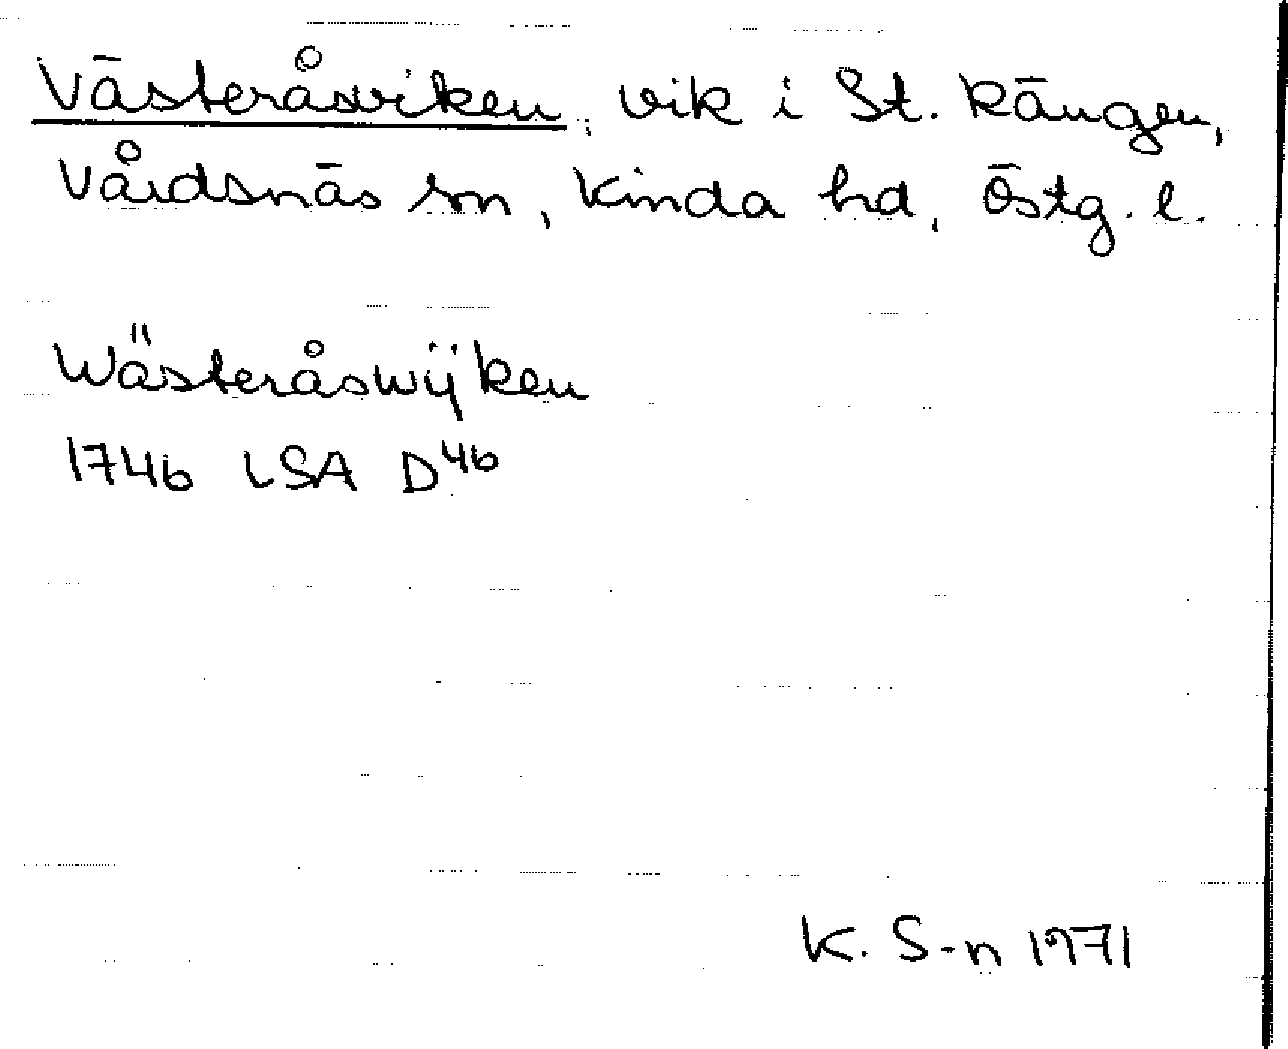 Västeråsviken, vik i St. Rängen,
Vårdsnäs sn, Kinda hd, Östg. l.
Wästeråswijken
1746 LSA D46
K. S-n 1971